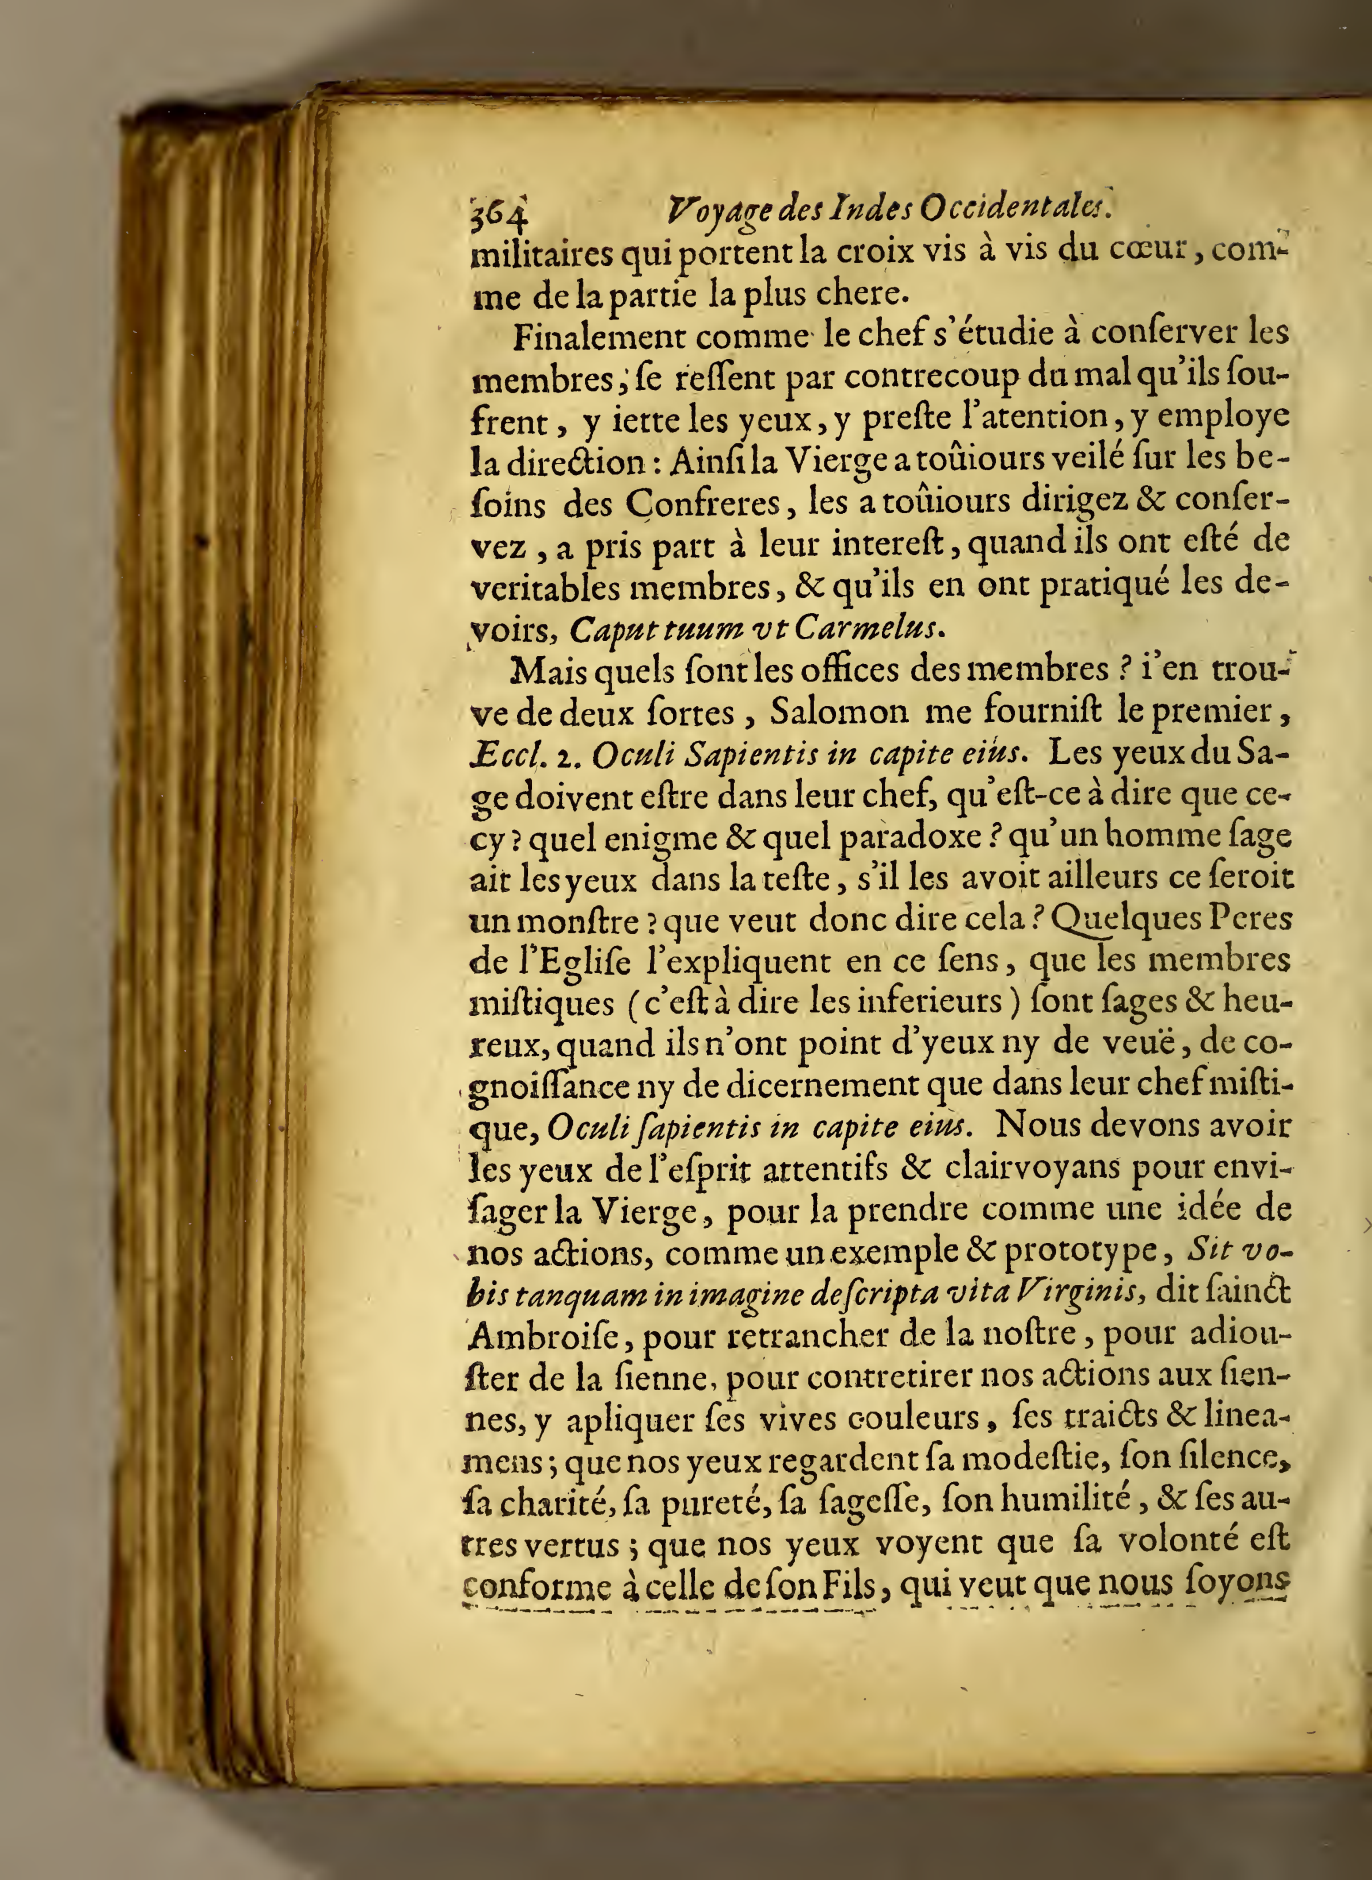 364 Voyage des Indes Occidentales.
militaires qui portent la croix vis à vis du cœur, com-
me de la partie la plus chere.
Finalement comme le chef s'étudie à conſerver les
membres, ſe reſſent par contrecoup du mal qu'ils ſou-
frent, y iette les yeux, y preſte l'atention, y employe
la direction : Ainſi la Vierge a toûiours veilé ſur les be-
ſoins des Confreres, les a toûiours dirigez & conſer-
vez, a pris part à leur intereſt, quand ils ont eſté de
veritables membres, & qu'ils en ont pratiqué les de-
voirs, Caput tuum vt Carmelus.
Mais quels ſont les offices des membres ? i'en trou-
ve de deux ſortes, Salomon me fourniſt le premier,
Eccl. 2. Oculi Sapientis in capite eius. Les yeux du Sa-
ge doivent eſtre dans leur chef, qu'eſt-ce à dire que ce-
cy ? quel enigme & quel paradoxe ? qu'un homme ſage
ait les yeux dans la teſte, s'il les avoit ailleurs ce ſeroit
un monſtre ? que veut donc dire cela ? Quelques Peres
de l'Egliſe l'expliquent en ce ſens, que les membres
miſtiques (c'eſt à dire les inferieurs) ſont ſages & heu-
reux, quand ils n'ont point d'yeux ny de veuë, de co-
gnoiſſance ny de dicernement que dans leur chef miſti-
que, Oculi ſapientis in capite eius. Nous devons avoir
les yeux de l'eſprit attentifs & clairvoyans pour envi-
ſager la Vierge, pour la prendre comme une idée de
nos actions, comme un exemple & prototype, Sit vo-
bis tanquam in imagine deſcripta vita Virginis, dit ſainct
Ambroiſe, pour retrancher de la noſtre, pour adiou-
ſter de la ſienne, pour contretirer nos actions aux ſien-
nes, y apliquer ſes vives couleurs, ſes traicts & linea-
mens ; que nos yeux regardent ſa modeſtie, ſon ſilence,
ſa charité, ſa pureté, ſa ſageſſe, ſon humilité, & ſes au-
tres vertus ; que nos yeux voyent que ſa volonté eſt
conforme à celle de ſon Fils, qui veut que nous ſoyons